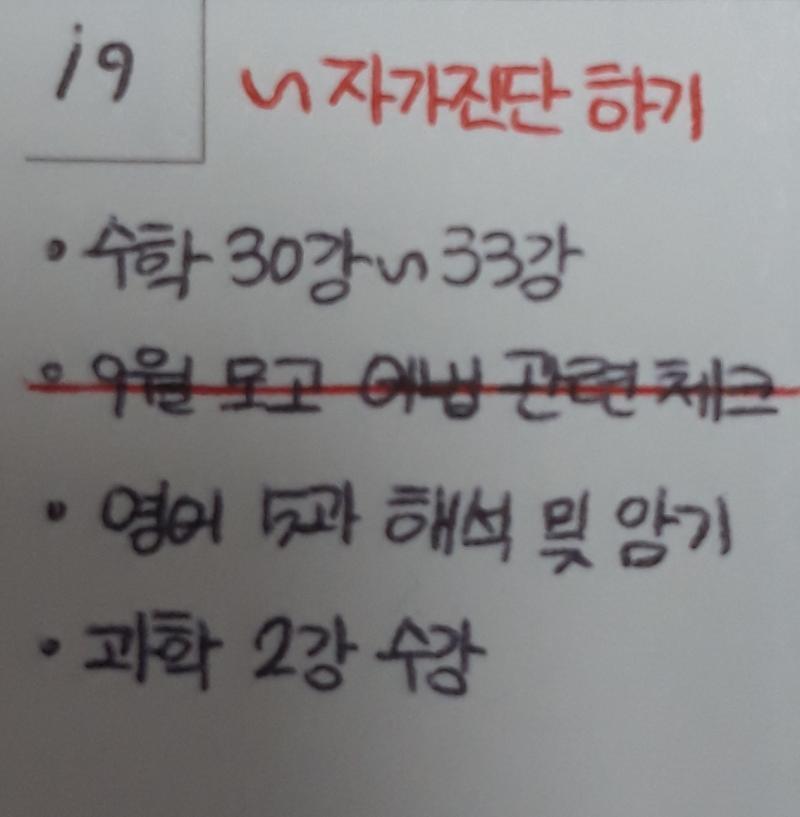 19
~자가진단 하기
• 수학 30강~33강
• 9월 모고 어법 관련 체크
• 영어 5과 해석 및 암기
• 과학 2강 수강